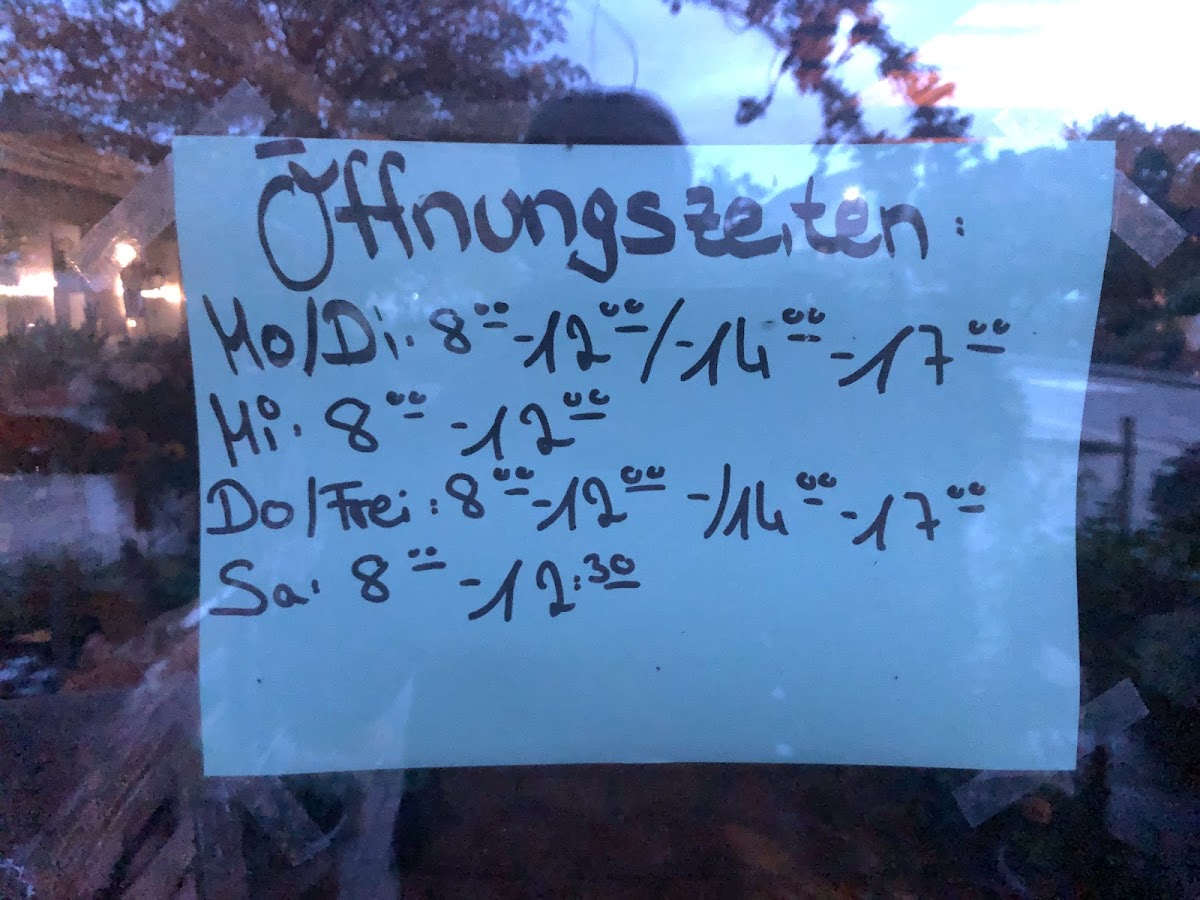 Öffnungszeiten:
Mo/Di: 8⁰⁰-12⁰⁰/-14⁰⁰-17⁰⁰
Mi: 8⁰⁰-12⁰⁰
Do/Frei: 8⁰⁰-12⁰⁰-/14⁰⁰-17⁰⁰
Sa: 8⁰⁰-12:³⁰